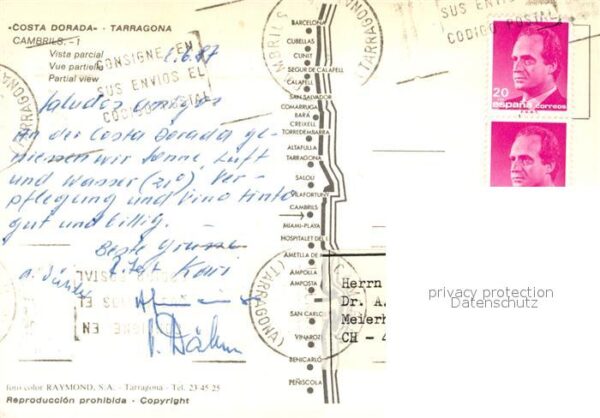 «COSTA DORADA» - TARRAGONA
CAMBRILS. - 1
Vista parcial
Vue partielle
Partial view
CONSIGNE EN
SUS ENVIOS EL
CODIGO POSTAL
2.6.87
Saludos amigos
An der Costa Dorada ge-
niessen wir Sonne, Luft
und Wasser (21°). Ver-
pflegung und Vino tinto
gut und billig.
Beste Grüsse
Kari
foto color RAYMOND, S.A. - Tarragona - Tel. 23 45 25
Reproducción prohibida - Copyright
BARCELONA
CUBELLAS
CUNIT
SEGUR DE CALAFELL
CALAFELL
SAN SALVADOR
COMARRUGA
BARA
CREIXELL
TORREDEMBARRA
ALTAFULLA
TARRAGONA
SALOU
VILAFORTUNY
CAMBRILS
MIAMI-PLAYA
HOSPITALET DEL I.
AMETLLA DE
AMPOLLA
AMPOSTA
SAN CARLOS
VINAROZ
BENICARLÓ
PEÑISCOLA
(TARRAGONA)
SUS ENVIOS
CODIGO POSTAL
20
españa correos
Herrn
Dr. A.
Meierh
CH - 4
privacy protection
Datenschutz